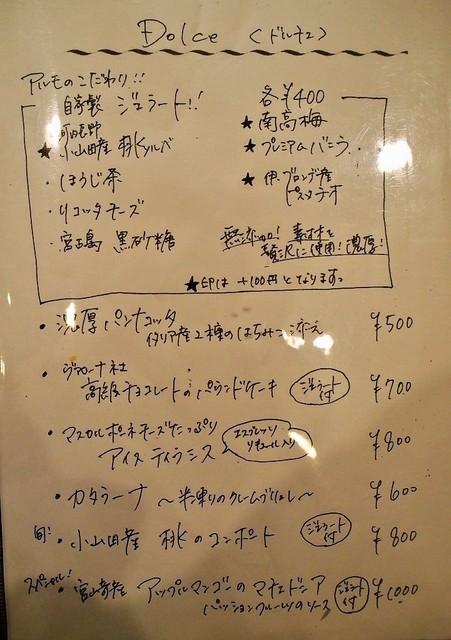 Dolce (ドルチェ)
アルモのこだわり!!
自家製 ジェラート!! 各¥400
河内長野
★小山田産 桃ソルベ
・ほうじ茶
・リコッタチーズ
・宮古島 黒砂糖
★南高梅
★プレミアムバニラ
★伊.ブロンテ産
ピスタチオ
無添加! 素材を
贅沢に使用! 濃厚!
★印は +100円となります。
・濃厚パンナコッタ
イタリア産2種のはちみつ添え ¥500
・ヴァローナ社
高級チョコレートのパウンドケーキ ジェラート付 ¥700
・マスカルポーネチーズたっぷり
アイスティラミス エスプレッソリキュール入り ¥800
・カタラーナ 〜半凍りのクレームブリュレ〜 ¥600
旬!・小山田産 桃のコンポート ジェラート付 ¥800
スペシャル!・宮崎産 アップルマンゴーのマチェドニア
パッションフルーツのソース ジェラート付 ¥1000